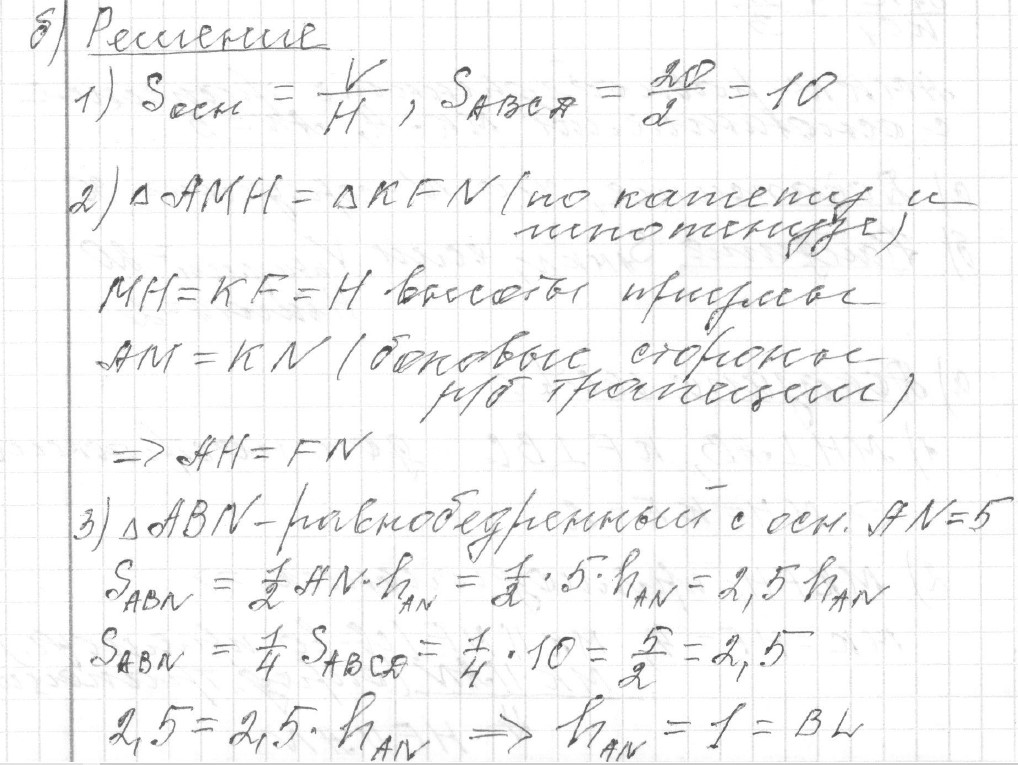 б) Решение
1) Sосн = V/H, SABCD = 20/2 = 10
2) △AMH = △KFN (по катету и
гипотенузе)
MH = KF = H высоты призмы
AM = KN (боковые стороны
р/б трапеции)
=> AH = FN
3) △ABN - равнобедренный с осн. AN = 5
SABN = 1/2 AN · hAN = 1/2 · 5 · hAN = 2,5 hAN
SABN = 1/4 SABCD = 1/4 · 10 = 5/2 = 2,5
2,5 = 2,5 · hAN => hAN = 1 = BL